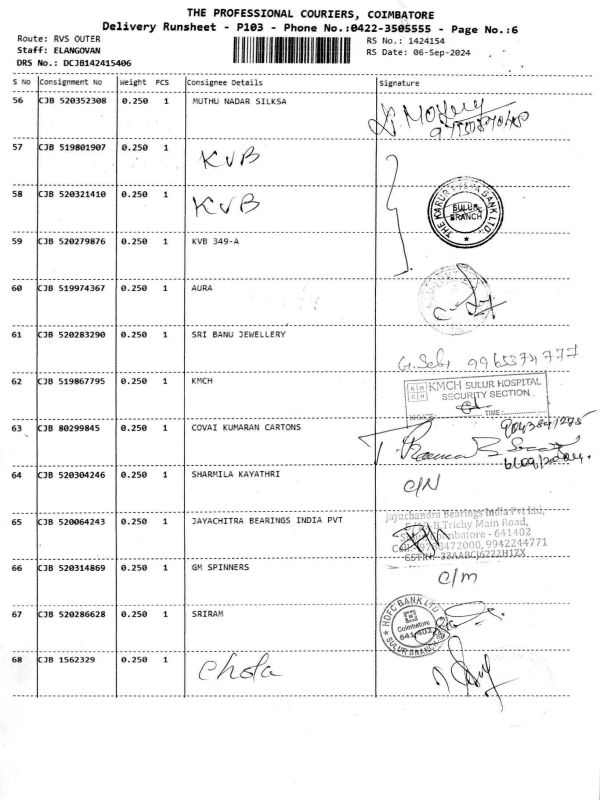 THE PROFESSIONAL COURIERS, COIMBATORE
Delivery Runsheet - P103 - Phone No.:0422-3505555 - Page No.:6
Route: RVS OUTER RS No.: 1424154
Staff: ELANGOVAN RS Date: 06-Sep-2024
DRS No.: DCJB142415406
S No Consignment No Weight PCS Consignee Details Signature
56 CJB 520352308 0.250 1 MUTHU NADAR SILKSA
57 CJB 519801907 0.250 1 KVB
58 CJB 520321410 0.250 1 KVB
THE KARUR VYSYA BANK LTD.
SULUR
BRANCH
59 CJB 520279876 0.250 1 KVB 349-A
60 CJB 519974367 0.250 1 AURA
61 CJB 520283290 0.250 1 SRI BANU JEWELLERY
9965374777
62 CJB 519867795 0.250 1 KMCH
KMCH SULUR HOSPITAL
SECURITY SECTION
TIME:
63 CJB 80299845 0.250 1 COVAI KUMARAN CARTONS
64 CJB 520304246 0.250 1 SHARMILA KAYATHRI
C/N
65 CJB 520064243 0.250 1 JAYACHITRA BEARINGS INDIA PVT
Jayachandra Bearings India Pvt Ltd,
Trichy Main Road,
Coimbatore - 641402
9942244771
66 CJB 520314869 0.250 1 GM SPINNERS
C/m
67 CJB 520286628 0.250 1 SRIRAM
HDFC BANK LTD
Coimbatore
641 402
SULUR BRANCH
68 CJB 1562329 0.250 1 Chola